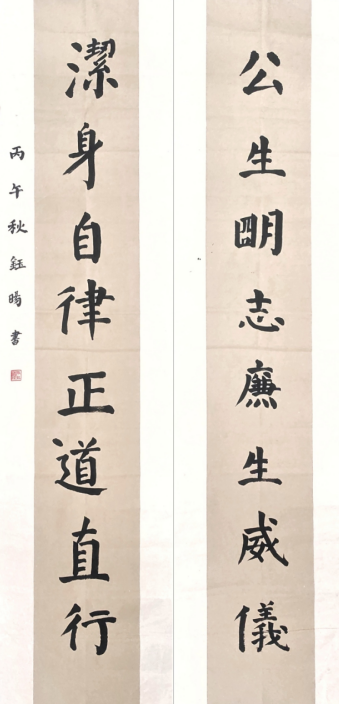 公生明志廉生威儀
潔身自律正道直行
丙午秋鈺暘書